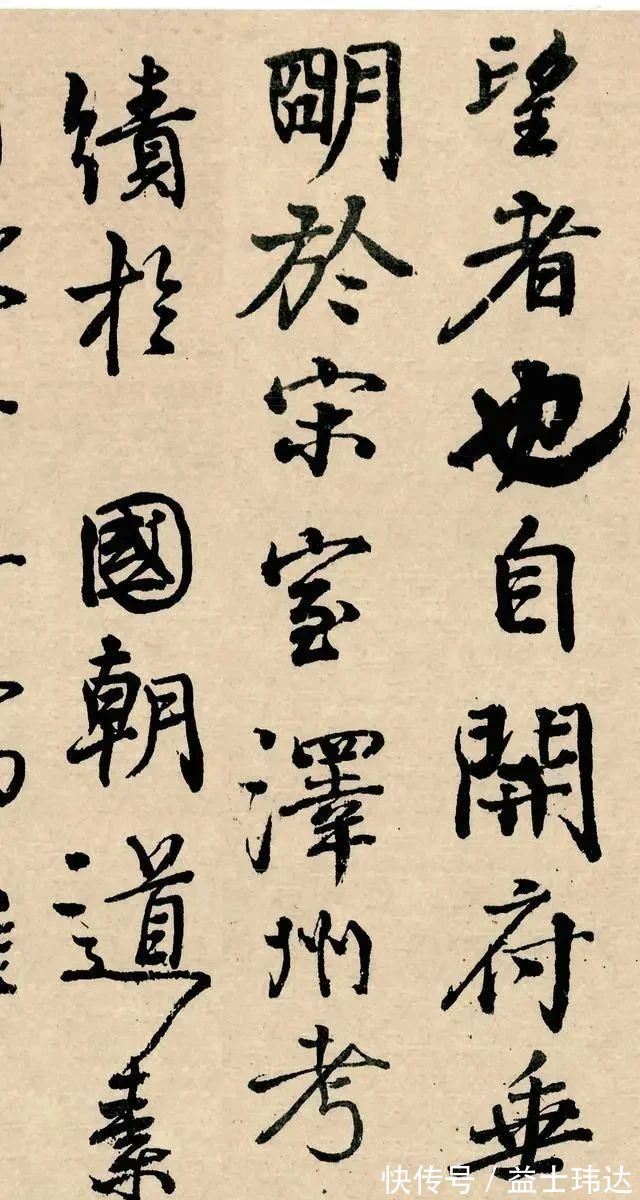 望者也自開府垂
明於宋室澤州考
績於國朝道素
快传号 / 益士玮达